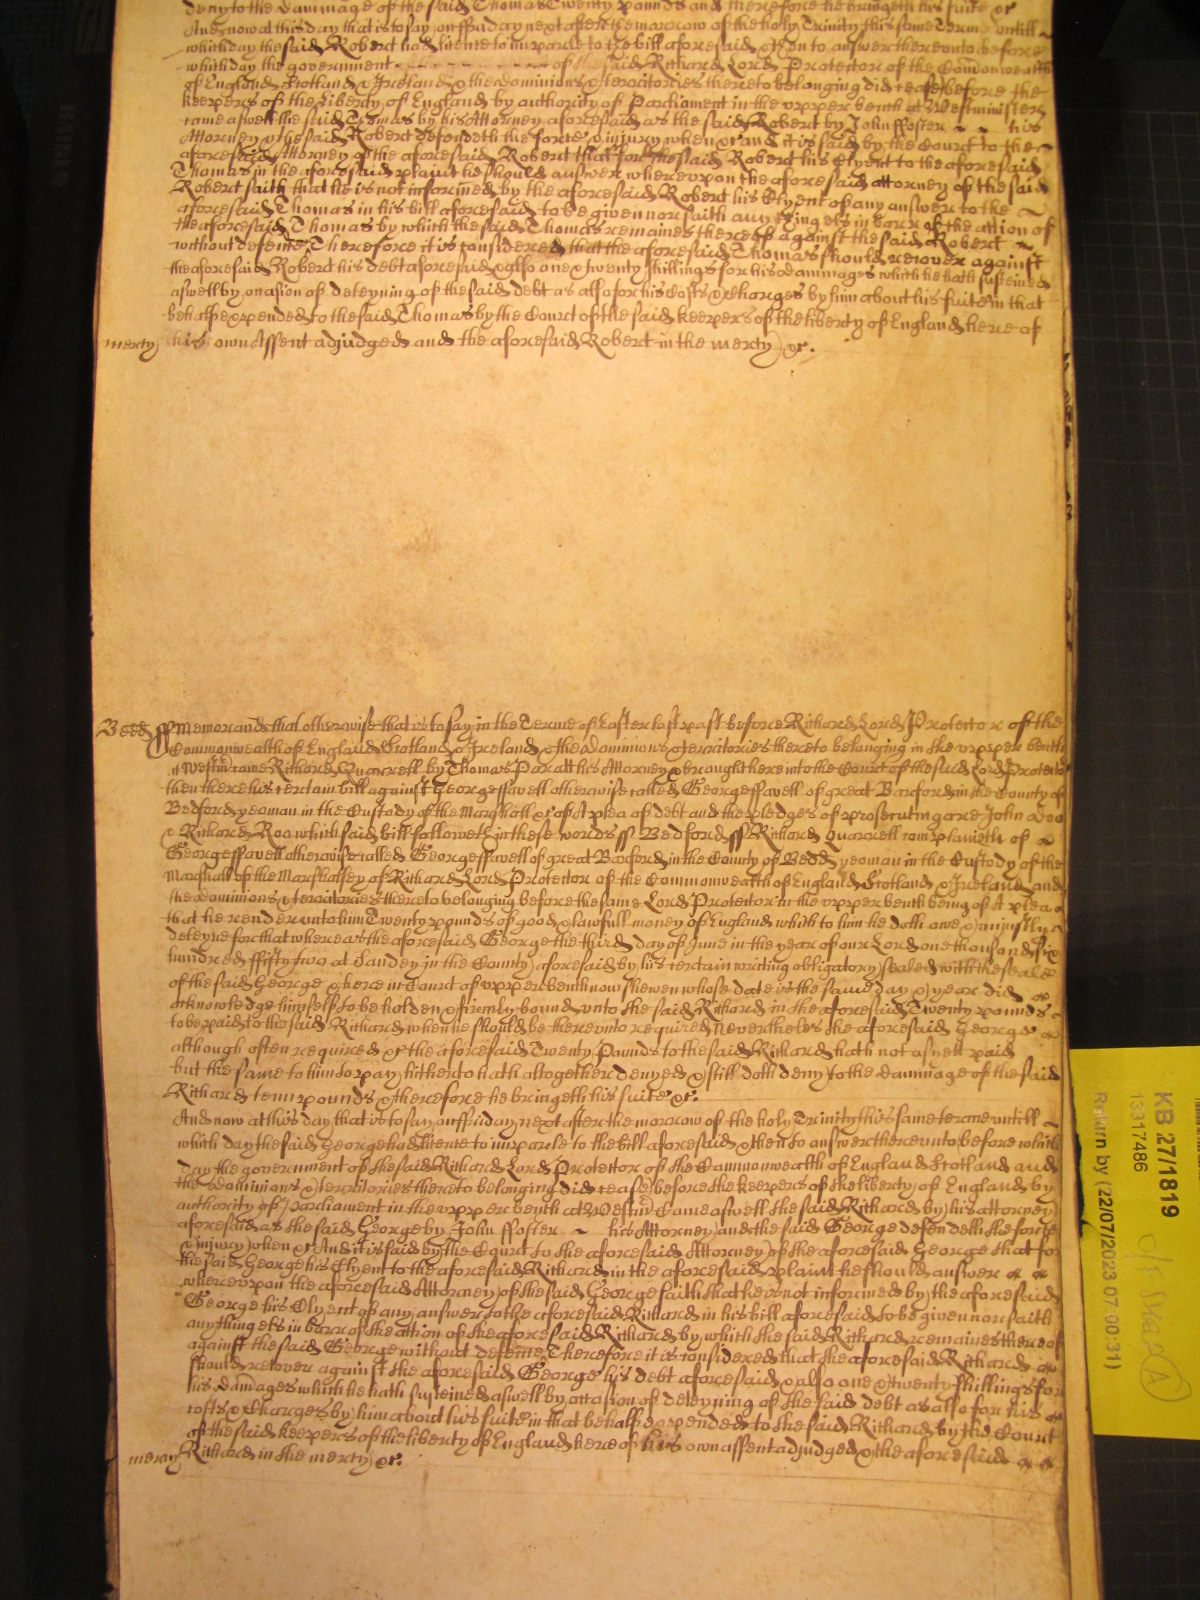 deny to the dammage of the said Thomas Twenty pounds and therefore he bringeth his suite &c
And now at this day that is to say on ffriday next after the morrow of the holy Trinity this same Terme untill
which day the said Robert had licence to imparle to the bill aforesaid & then to answer thereunto before
which day the government of the said Richard Lord Protector of the Comonwealth
of England Scotland & Ireland & the dominions & territories thereto belonging did cease before the
keepers of the Liberty of England by authority of Parliament in the upper bench at Westminister
came aswell the said Thomas by his Attorney aforesaid as the said Robert by John ffoster his
Attorney & the said Robert defendeth the force & injury when &c and it is said by the Court to the
aforesaid Attorney of the aforesaid Robert that for the said Robert his Clyent to the aforesaid
Thomas in the aforesaid plaint he should answer whereupon the aforesaid attorney of the said
Robert saith that he is not informed by the aforesaid Robert his Clyent of any answer to the
aforesaid Thomas in his bill aforesaid to be given nor saith any thing els in barr of the action of
the aforesaid Thomas by which the said Thomas remaines thereof against the said Robert
without defence Therefore it is considered that the aforesaid Thomas should recover against
the aforesaid Robert his debt aforesaid & also one & twenty shillings for his dammages which he hath susteined
aswell by occasion of deteyning of the said debt as also for his Costs & Charges by him about his suite in that
behalfe expended to the said Thomas by the Court of the said keepers of the liberty of England here of
mercy his own Assent adjudged and the aforesaid Robert in the mercy &c.
Bedd ss Memorand that otherwise that is to say in the Terme of Easter last past before Richard Lord Protector of the
Commonwealth of England Scotland & Ireland & the dominions & territories thereto belonging in the upper bench
at Westm came Richard Quarrell by Thomas Parratt his Attorney & brought here into the Court of the said Lord Protector
then there his certain bill against George ffavell otherwise called George ffavell of great Barford in the County of
Bedford yeoman in the Custody of the Marshall &c of A plea of debt and the pledges of prosecuting are John doo
& Richard Roo which said bill followeth in these words ss Bedford ss Richard Quarrell complaineth of
George ffavell otherwise called George ffavell of great Barford in the County of Bedd yeoman in the Custody of the
Marshall of the Marshalsey of Richard Lord Protector of the Commonwealth of England Scotland & Ireland and
the dominions & territories thereto belonging before the same Lord Protector in the upper bench being of A plea
that he render unto him Twenty pounds of good & lawfull money of England which to him he doth owe & unjustly
deteyne for that whereas the aforesaid George the third day of June in the year of our Lord one thousand six
hundred ffifty two at Sandey in the County aforesaid by his certain writing obligatory sealed with the seale
of the said George & here in Court of upper bench now shewen whose date is the same day & year did
acknowledge himselfe to be holden & firmly bound unto the said Richard in the aforesaid Twenty pounds
to be paid to the said Richard when he should be thereunto required Nevertheles the aforesaid George
although often required &c the aforesaid Twenty Pounds to the said Richard hath not as yett paid
but the same to him to pay hitherto hath altogether denyed & still doth deny to the dammage of the said
Richard tenn pounds & therefore he bringeth his suite &c.
And now at this day that is to say on ffriday next after the morrow of the holy Trinity this same terme untill
which day the said George had licente to imparle to the bill aforesaid & then to answer thereunto before which
day the government of the said Richard Lord Protector of the Commonwealth of England Scotland and
the dominions & territories thereto belonging did cease before the keepers of the liberty of England by
authority of Parliament in the upper bench at Westm Came aswell the said Richard by his attorney
aforesaid as the said George by John ffoster his Attorney and the said George defendeth the force
& injury when &c And it is said by the Court to the aforesaid Attorney of the aforesaid George that for
the said George his Clyent to the aforesaid Richard in the aforesaid plaint he should answer
whereupon the aforesaid Attorney of the said George saith that he is not informed by the aforesaid
George his Clyent of any answer to the aforesaid Richard in his bill aforesaid to be given nor saith
any thing els in barr of the action of the aforesaid Richard by which the said Richard remaines thereof
against the said George without defence Therefore it is considered that the aforesaid Richard
should recover against the aforesaid George his debt aforesaid & also one & twenty shillings for
his damages which he hath susteined aswell by occasion of deteyning of the said debt as also for his
costs & Charges by him about his suite in that behalfe expended to the said Richard by the Court
of the said keepers of the liberty of England here of his own assent adjudged & the aforesaid
mercy Richard in the mercy &c.
KB 27/1819
13317486
Return by (22/07/2023 07:00:31)
A